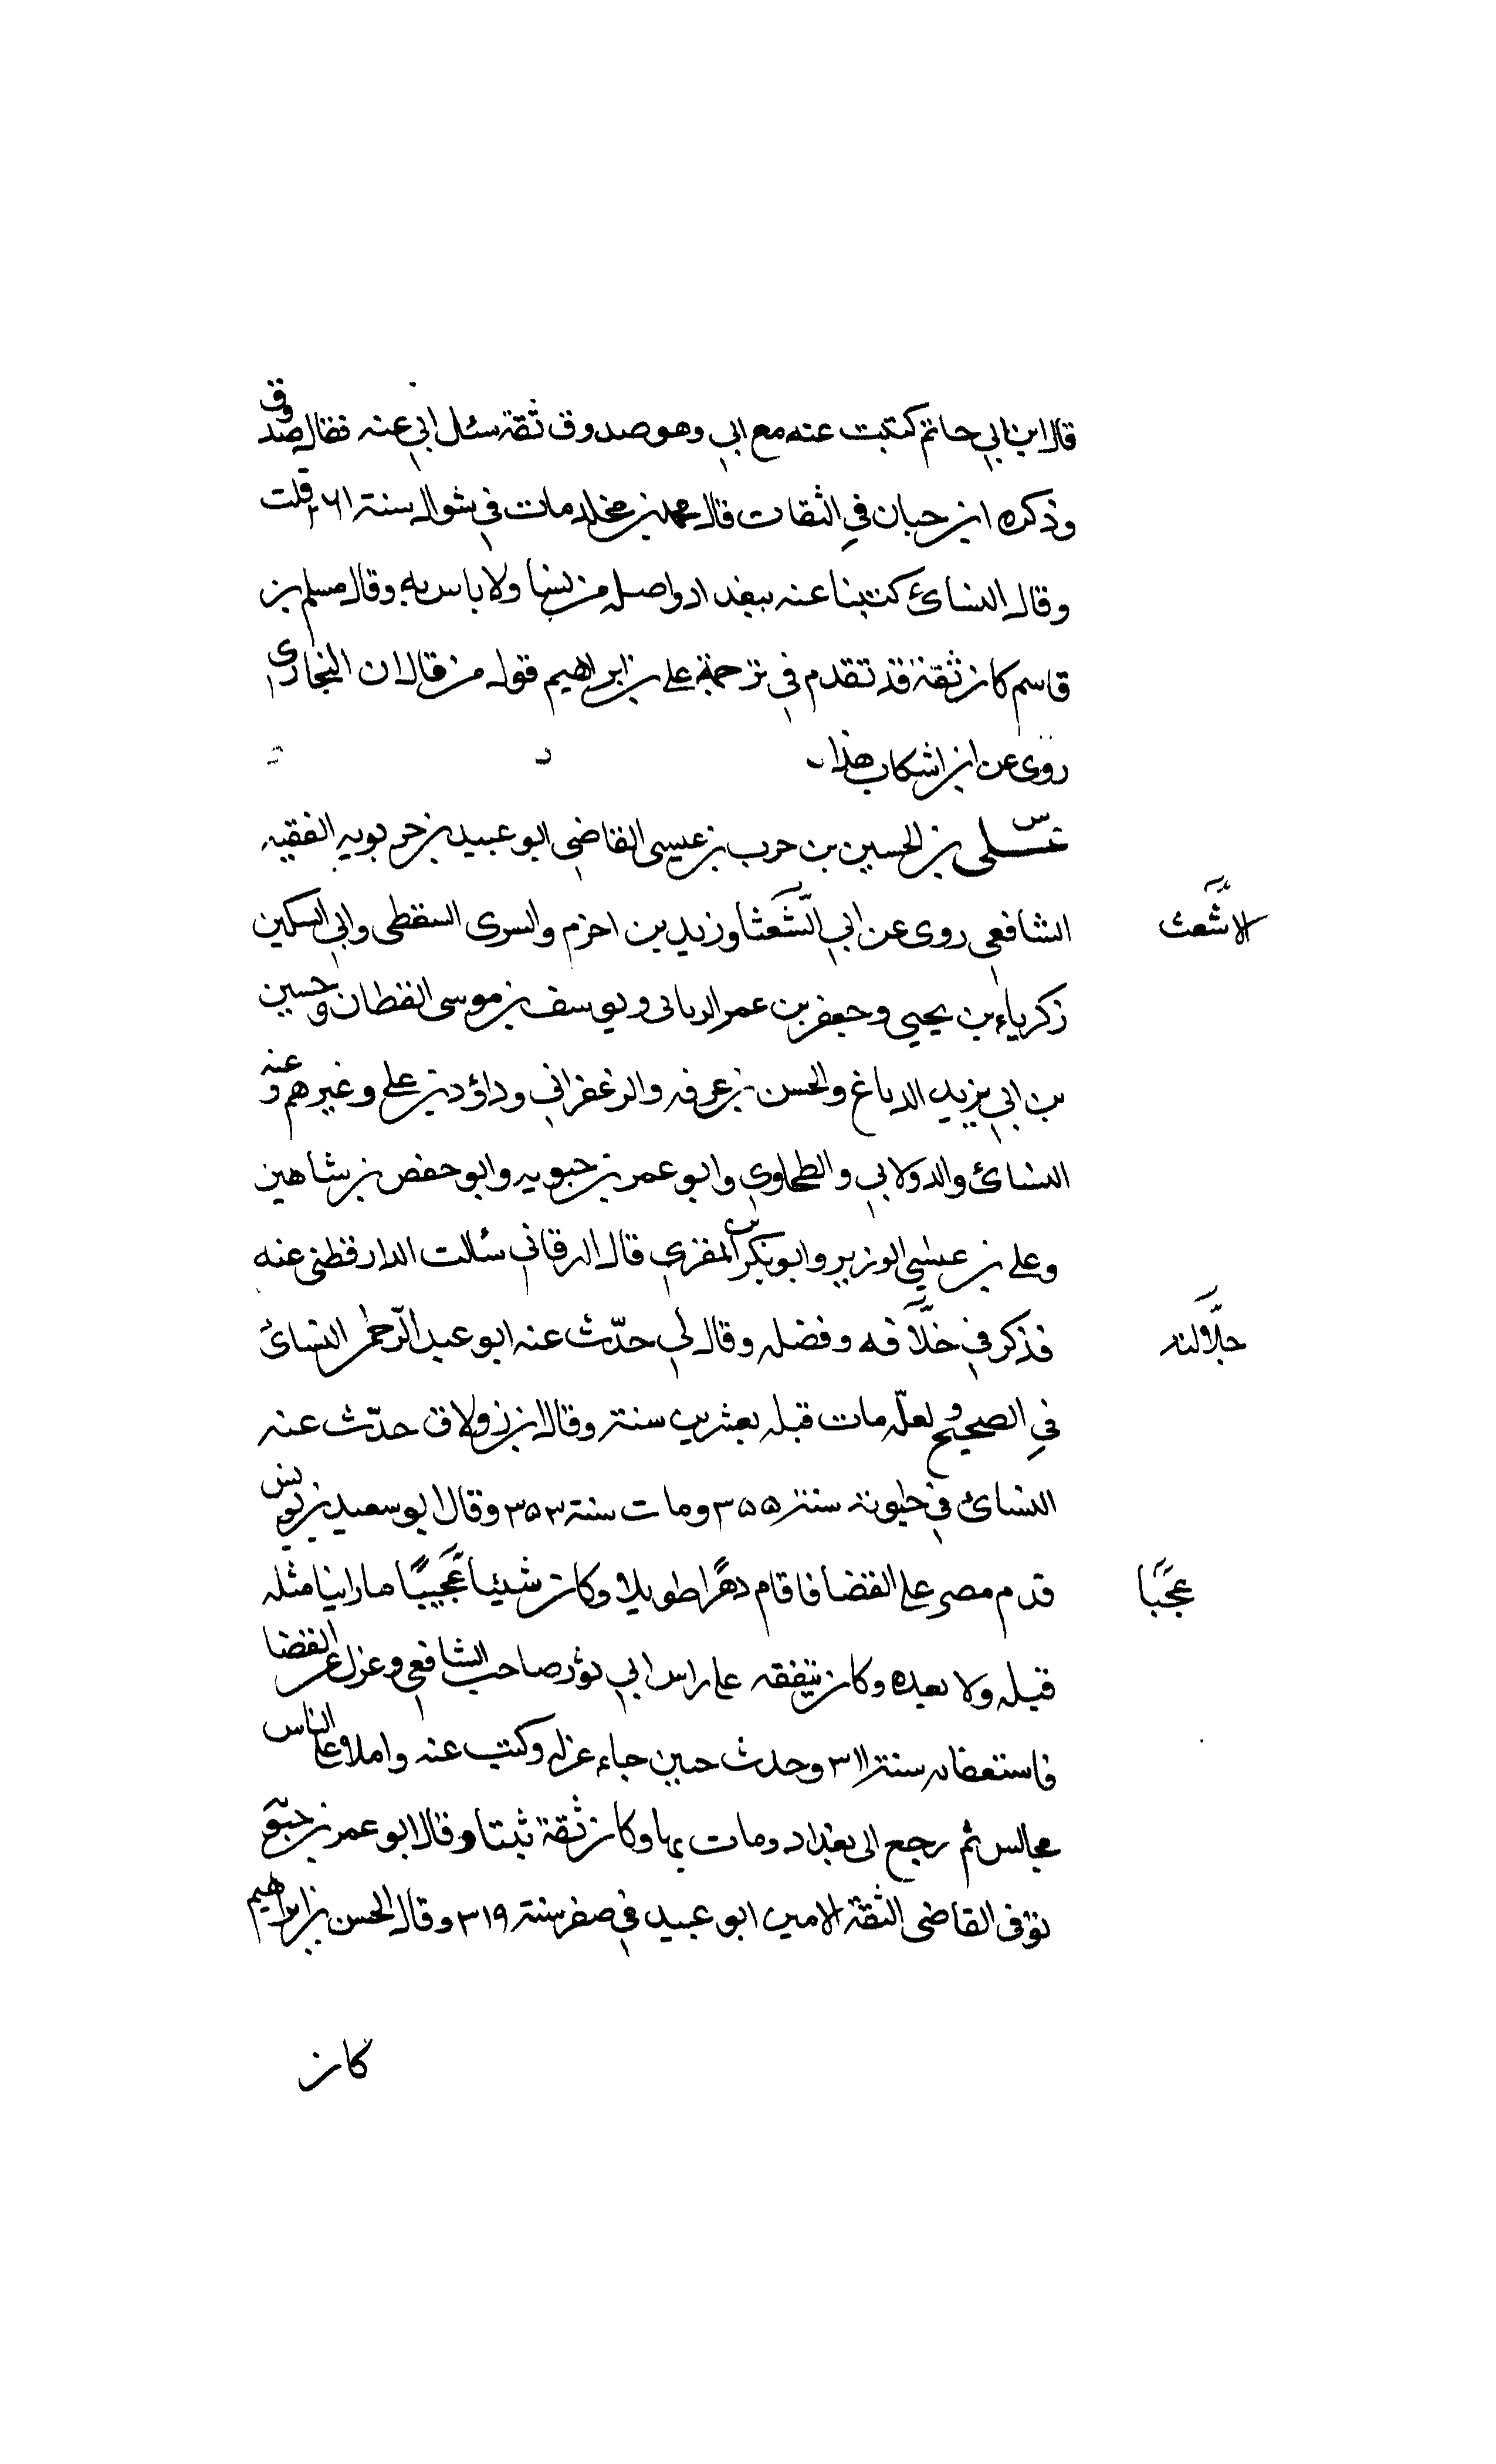 قال ابن ابي حاتم كتبت عنه مع ابي وهو صدوق ثقة سئل ابي عنه فقال صدوق
وذكره ابن حبان في الثقات قال محمد بن مخلد مات في شوال سنة ٢٦١ قلت
وقال النسائ كتبنا عنه ببغداد واصله من نسا ولا باس به وقال مسلم بن
قاسم كان ثقة قد تقدم في ترجمة علي بن ابراهيم قوله من قال ان البخاري
روى عن ابن اشكاب هذا
س
علي بن الحسين بن حرب بن عيسى القاضي ابو عبيد بن حربويه الفقيه
الشافعي روى عن ابي الشعثا وزيد بن احزم والسرى السقطي وابي السكين
الاشعث
زكرياء بن يحيى وجعفر بن عمر الربالى ويوسف بن موسى القطان وحسين
بن ابي يزيد الدباغ والحسن بن عرفه والزعفراني وداؤد بن علي وغيرهم وعنه
النسائ والدولابي والطحاوي وابو عمر بن حبويه وابو حفص بن شاهين
وعلي بن عيسى الوزير وابو بكر بن المقري قال البرقاني سئلت الدارقطني عنه
فذكر في خلافه وفضله وقال لي حدّث عنه ابو عبد الرّحمن النسائ
جلالته
في الصحيح ولعلّه مات قبله بعشرين سنة وقال ابن زولاق حدّث عنه
النسائ في حيوته سنة ٣٥٥ ومات سنة ٣٥٣ وقال ابو سعيد بن يونس
قدم مصر علي القضا فاقام دهرًا طويلا وكان شيئا عجيبًا ما راينا مثله
عجبًا
قبله ولا بعده وكان يتفقه علي راس ابي ثور صاحب الشافعي وعزل عن القضا
سنة ٣١١ وحدث حين جاء عزله وكتب عنه واملا علي الناس
مجالس ثم رجع الى بغداد ومات بها وكان ثقة ثبتا وقال ابو عمر بن حبو
توفى القاضى الثقة الامين ابو عبيد في صفر سنة ٣١٩ وقال الحسن بن ابراهيم
كان